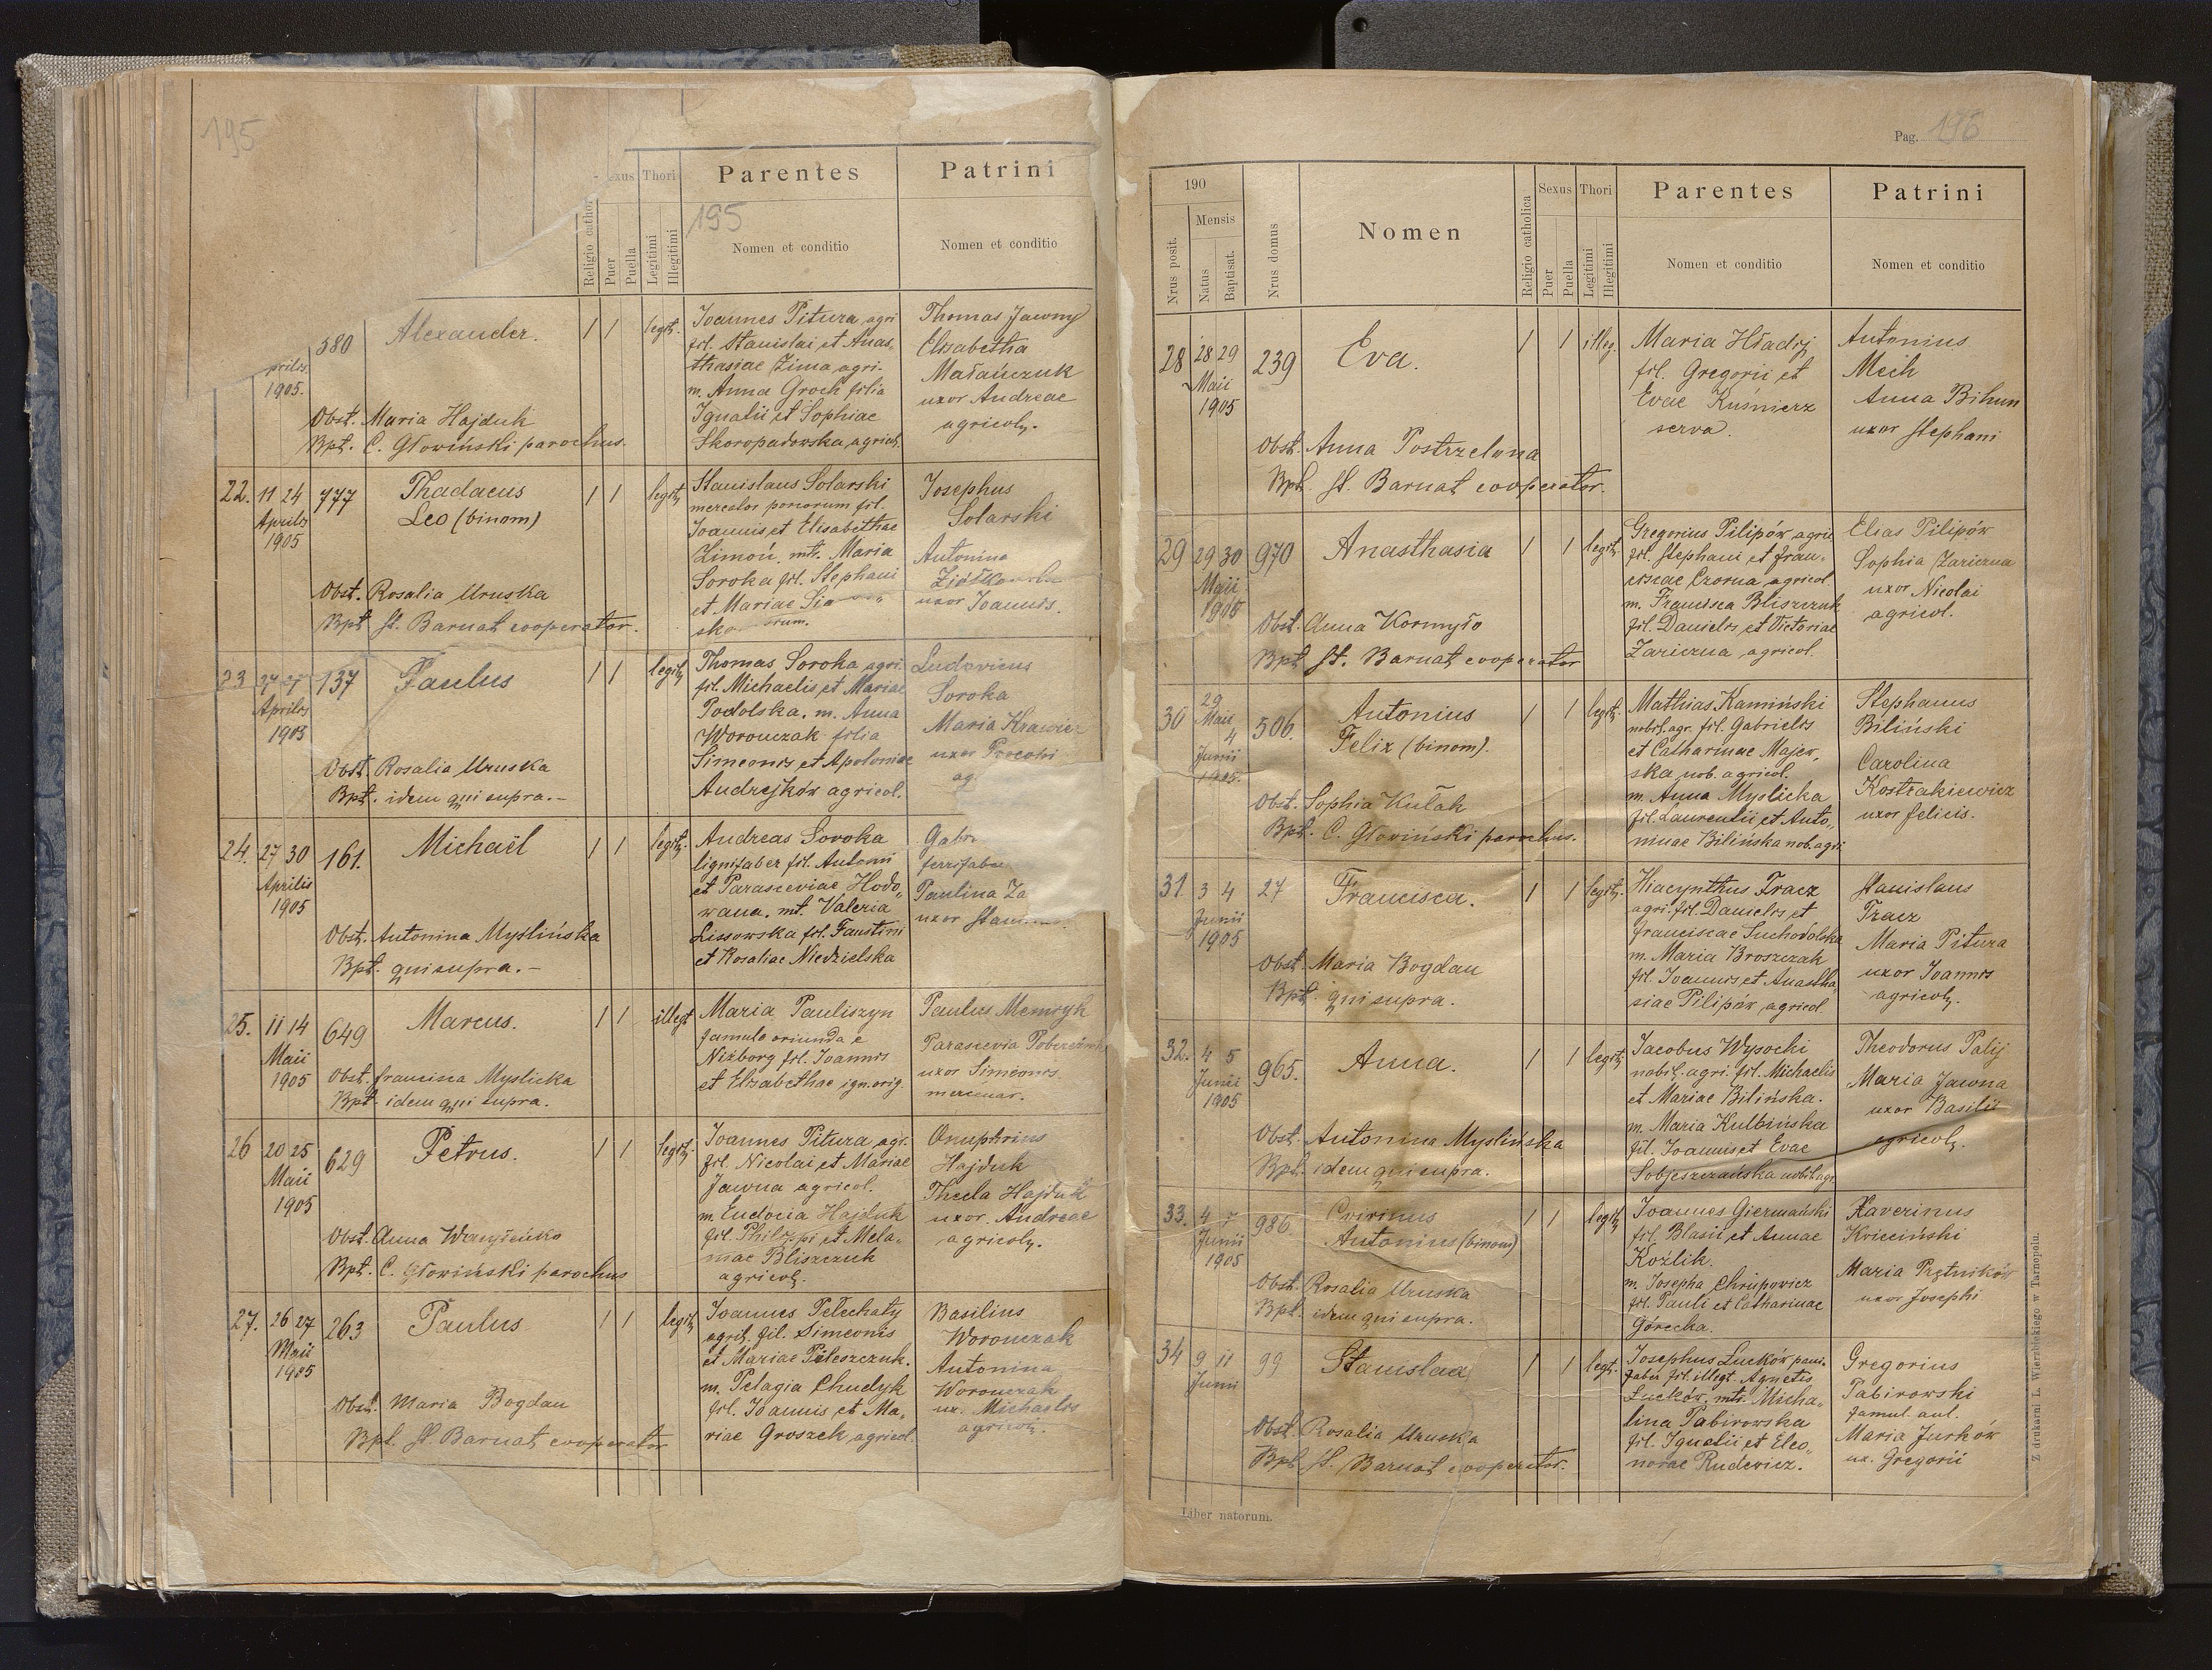 195
exus Thori
Parentes
Patrini
195
Religio cathol
Puer
Puella
Legitimi
Illegitimi
Nomen et conditio
Nomen et conditio
prilis
1905.
580
Alexander.
1 1 legit.
Obst. Maria Hajduk
Bpt. C. Głowiński parochus.
Joannes Pitura agri
fil. Stanislai et Anas„
thasiae Zima agri.
m. Anna Groch filia
Ignatii et Sophiae
Skoropadowska, agricol.
Thomas Jawny
Elisabetha
Małańczuk
uxor Andreae
agricol.
22. 11 24
Aprilis
1905
777
Thadaeus
Leo (binom)
1 1 legit.
Obst. Rosalia Uruska
Bpt. St. Barnat cooperator.
Stanislaus Solarski
mercator porcorum fil.
Joannis et Elisabethae
Zimoń, mt. Maria
Soroka fil. Stephani
et Mariae
Josephus
Solarski
Antonina
uxor Joannis.
23 27 27
Aprilis
1905
137
Paulus
1 1 legit.
Obst. Rosalia Uruska
Bpt. idem qui supra.–
Thomas Soroka agri.
fil. Michaelis et Mariae
Podolska. m. Anna
Woronczak filia
Simeonis et Apoloniae
Andrejków agricol.
Ludovicus
Soroka
Maria Krawiec
uxor Procobi
ag.
24. 27 30
Aprilis
1905
161.
Michaël
1 1 legit.
Obst. Antonina Myslińska
Bpt. qui supra.–
Andreas Soroka
lignifaber fil. Antonii
et Parasceviae Hodo„
wana. mt. Valeria
Lissowska fil. Faustini
et Rosaliae Niedzielska
Gabr
ferrifaber
Paulina Za
uxor
25. 11 14
Maii
1905
649
Marcus.
1 1 illegt
Obst. Francisca Myslicka
Bpt. idem qui supra.
Maria Pauliszyn
famula oriunda e
Niżborg fil. Joannis
et Elisabethae ign. orig.
Paulus Memryk
Parascevia
uxor Simeonis
mercenar.
26 20 25
Maii
1905
629
Petrus.
1 1 legit.
Obst. Anna Wasyleńko
Bpt. C. Głowiński parochus
Joannes Pitura agr.
fil. Nicolai et Mariae
Jawna agricol.
m. Eudocia Hajduk
fil. Philippi et Mela„
niae Bliszczuk
agricol.
Onuphrius
Hajduk
Thecla Hajduk
uxor. Andreae
agricol.
27. 26 27
Maii
1905
263
Paulus
1 1 legit.
Obst. Maria Bogdan
Bpt. St Barnat cooperator
Joannes Pełechaty
agril. fil. Simeonis
et Mariae Peleszczuk.
m. Pelagia Chudyk
fil. Joannis et Ma„
riae Groszek agricol.
Basilius
Woronczak
Antonina
Woronczak
ux. Michaelis
agricol.
Pag. 196
190
Mensis
Nrus posit.
Natus
Baptisat.
Nrus domus
Nomen
Religio catholica
Sexus
Puer
Puella
Thori
Legitimi
Illegitimi
Parentes
Nomen et conditio
Patrini
Nomen et conditio
28 28 29
Maii
1905
239
Eva.
1 1 illeg.
Obst. Anna Postrzelona
Bpt. St. Barnat cooperator.
Maria Hładij
fil. Gregorii et
Evae Kuśnierz
serva.
Antonius
Mech
Anna Bihun
uxor Stephani
29 29 30
Maii
1905
970
Anasthasia
1 1 legit.
Obst. Anna Kormyło
Bpt St. Barnat cooperator
Gregorius Pilipów agri
fil. Stephani et Fran„
ciscae Czorna agricol
m. Francisca Bliszczuk
fil. Danielis et Victoriae
Zariczna agricol.
Elias Pilipów
Sophia Zariczna
uxor Nicolai
agricol.
30 29
Maii
4
Junii
1905.
506.
Antonius
Felix (binom).
1 1 legit.
Obst. Sophia Kułak
Bpt. C. Głowiński parochus.
Mathias Kamiński
nobil. agr. fil. Gabrielis
et Catharinae Majew„
ska nob. agricol.
m. Anna Myslicka
fil. Laurentii et Anto„
ninae Bilińska nob. agri
Stephanus
Biliński
Carolina
Kostrakiewicz
uxor Felicis.
31 3 4
Junii
1905
27
Francisca.
1 1 legit.
Obst. Maria Bogdan
Bpt. qui supra.
Hiacynthus Tracz
agri. fil. Danielis et
Franciscae Suchodolska
m. Maria Broszczak
fil. Joannis et Anastha„
siae Pilipów agricol.
Stanislaus
Tracz
Maria Pitura
uxor Joannis
agricol.
32. 4 5
Junii
1905
965.
Anna.
1 1 legit.
Obst. Antonina Myslińska
Bpt. idem qui supra.
Jacobus Wysocki
nobil. agri. fil. Michaelis
et Mariae Bilińska.
m. Maria Kulbińska
fil. Joannis et Evae
Sobjeszczańska nobil. agr.
Theodorus Palij
Maria Jawna
uxor Basilii
agricol.
33. 4 7
Junii
1905
986.
Cvirinus
Antonius (binom)
1 1 legit.
Obst. Rosalia Uruska
Bpt. idem qui supra.
Joannes Giermański
fil. Blasii et Annae
Koźlik.
m. Josepha Chrupowicz
fil. Pauli et Catharinae
Górecka.
Xaverinus
Kriciński
Maria Prętników
uxor Josephi
34 9 11
Junii
99
Stanislaa
1 1 legt.
Obst. Rosalia Uruska
Bpt. St. Barnat cooperator.
Josephus Łucków pani„
faber fil. illegt. Agnetis
Łucków. mt. Micha„
lina Pabirowska
fil. Ignatii et Eleo„
norae Rudewicz.
Gregorius
Pabirowski
famul. aul.
Maria Jurków
ux. Gregorii
Liber natorum.
Z drukarni L. Wierzbickiego w Tarnopolu.